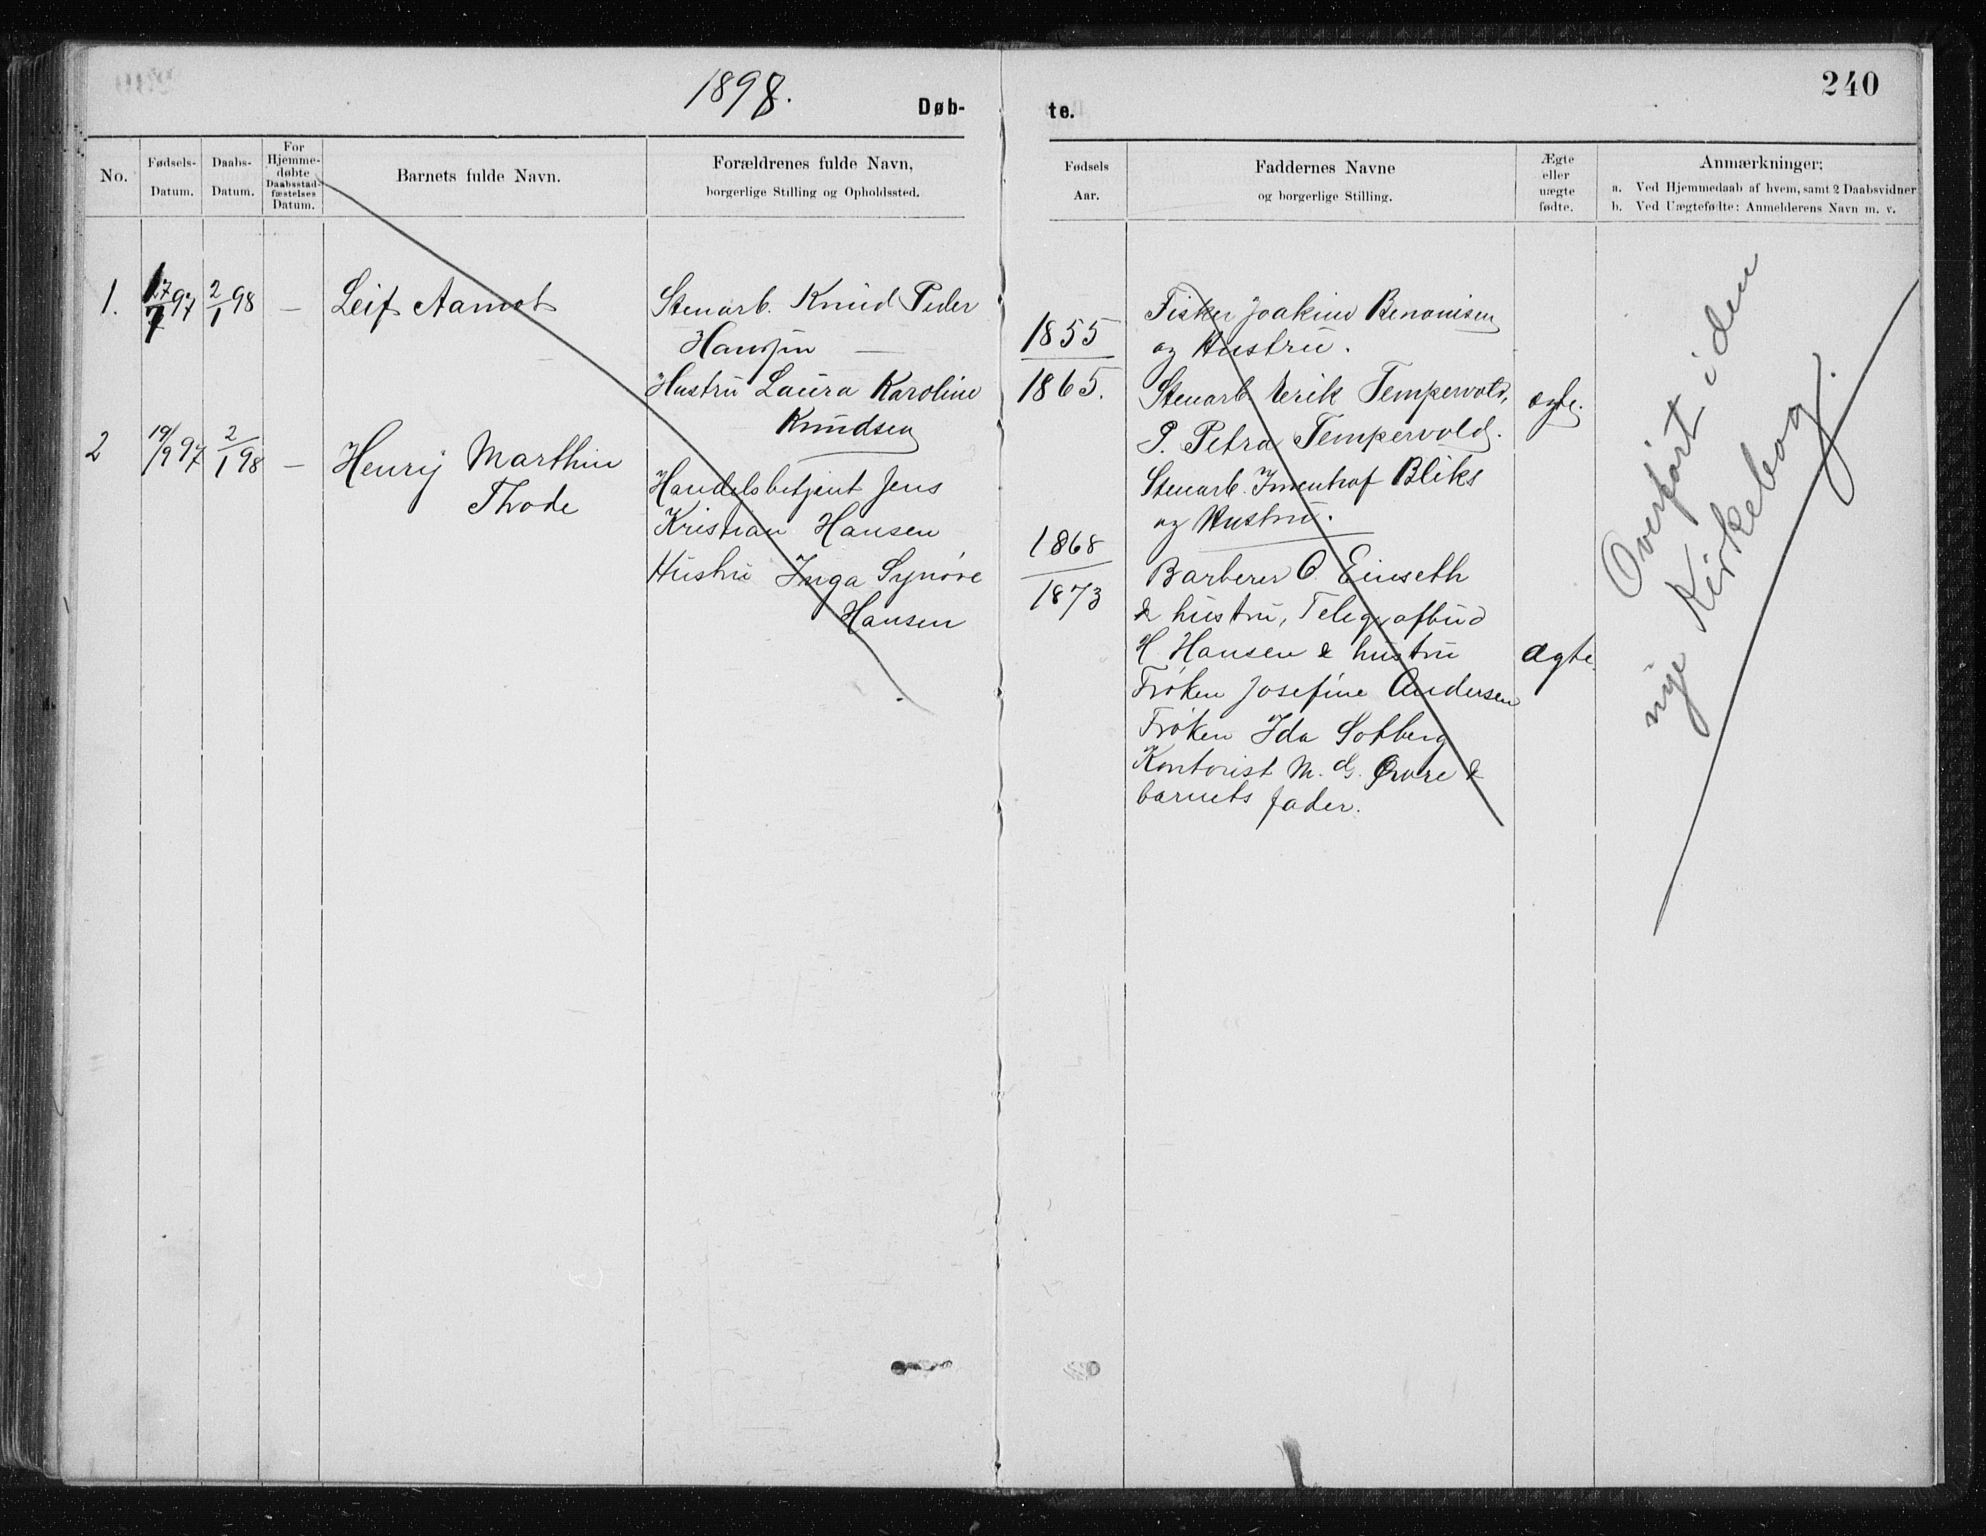 1898.
Døb-
te.
240
No.
Fødsels-
Datum.
Daabs-
Datum.
For
Hjemme-
døbte
Daabsstad-
fæstelses
Datum.
Barnets fulde Navn.
Forældrenes fulde Navn,
borgerlige Stilling og Opholdssted.
Fødsels
Aar.
Faddernes Navne
og borgerlige Stilling.
Ægte
eller
uægte
fødte.
Anmærkninger;
a. Ved Hjemmedaab af hvem, samt 2 Daabsvidner
b. Ved Uægtefødte: Anmelderens Navn m. v.
1. 97 2/1 98 — Leif Aamot
Stenarb. Knud Peder
Hansen —
Hustru Laura Karoline
Knudsen
1855
1865.
Fisker Joakim Benonisen
og Hustru.
Stenarb. Erik Tempervold,
P. Petra Tempervold.
Stenarb. Bliks
og Hustru.
ægte.
2 19/9 97 2/1 98 — Henrij Marthin
Thode
Handelsbetjent Jens
Kristian Hansen
Hustru Inga Synøve
Hansen
1868
1873
Barberer O. Einseth
& hustru, Telegrafbud
H. Hansen & hustru
Frøken Josefine Andersen
Frøken Ida Solberg
Kontorist M. G. Øvre &
barnets fader.
ægte.
Overført i den
nye Kirkebog.